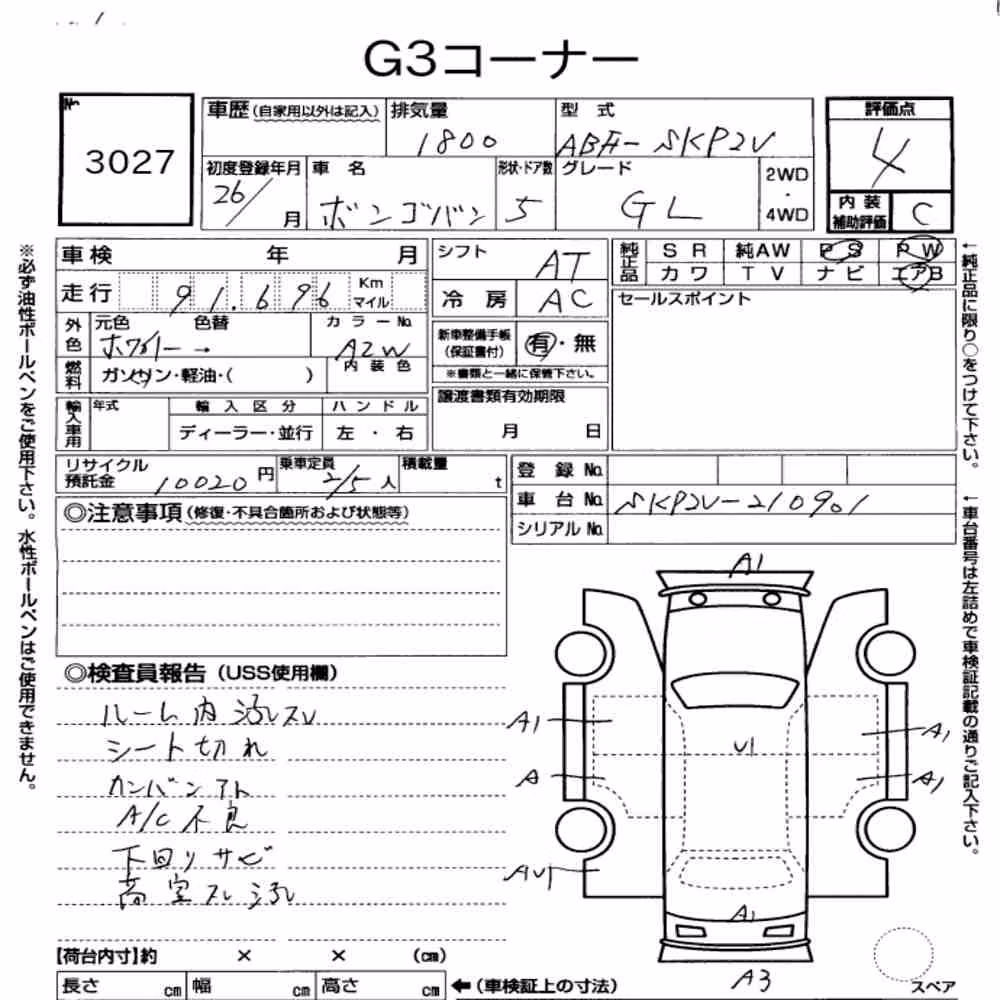 G3コーナー
№
3027
車歴(自家用以外は記入)
排気量
1800
型式
ABF-SKP2V
評価点
4
初度登録年月
26/ 月
車名
ボンゴバン
形状・ドア数
5
グレード
GL
2WD
・
4WD
内装
補助評価
C
車検 年 月
シフト
AT
純正品
SR 純AW PS PW
カワ TV ナビ エアB
走行 91.696 Km マイル
冷房
AC
セールスポイント
外色
元色 色替
ホワイト →
カラーNo.
A2W
新車整備手帳
(保証書付)
有・無
※書類と一緒に保管下さい。
燃料
ガソリン・軽油・( )
内装色
譲渡書類有効期限
月 日
輸入車用
年式
輸入区分
ハンドル
ディーラー・並行
左・右
リサイクル
預託金
10020円
乗車定員
2/5人
積載量
t
登録No.
車台No.
SKP2V-210901
シリアルNo.
◎注意事項(修復・不具合箇所および状態等)
◎検査員報告(USS使用欄)
ルーム内汚レスレ
シート切れ
カンバンアト
A/C不良
下回リサビ
荷室スレ汚レ
A1
A1
A1
U1
A
A1
AU1
A1
A3
スペア
【荷台内寸】約 × × (cm)
長さ cm
幅 cm
高さ cm
←(車検証上の寸法)
※必ず油性ボールペンをご使用下さい。水性ボールペンはご使用できません。
←純正品に限り○をつけて下さい。
←車台番号は左詰めで車検証記載の通りご記入下さい。